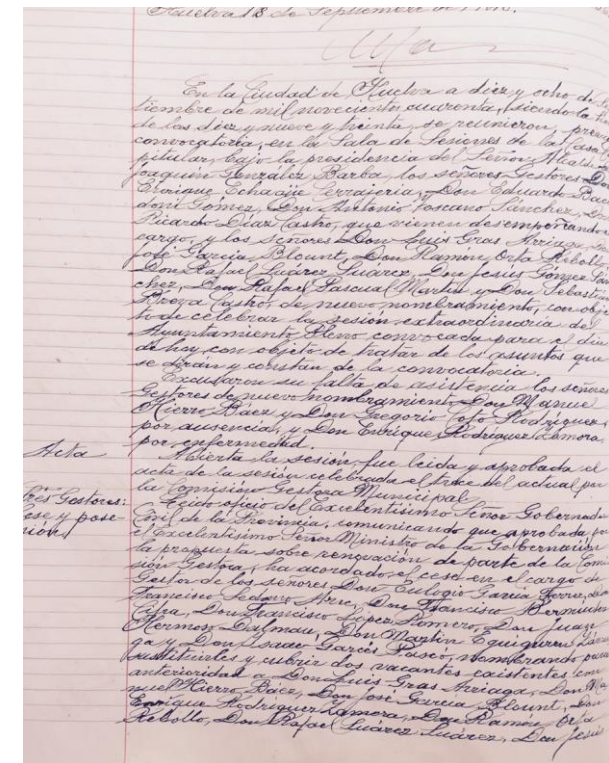 Huelva 18 de Septiembre de
En la Ciudad de Huelva a diez y ocho de
tiembre de mil novecientos cuarenta, siendo la
de las diez y nueve y treinta, se reunieron, previa
convocatoria, en la Sala de Sesiones de la Casa
pitular, bajo la presidencia del Señor Alcalde
Joaquin González Barba, los señores Gestores Don
Enrique Echagüe Don Eduardo
Gómez, Don Antonio Toscano Sánchez, Don
Ricardo Diaz Castro, que vienen desempeñando
cargo, y los Señores Don Luis Gras Arriaga, Don
José Garcia Blount, Don Ramón Orta Rebollo,
Don Rafael Suárez Suárez, Don Jesús Gómez Sán
chez, Don Rafael Pascual Martin y Don Sebastián
Castro, de nuevo nombramiento, con obje
to de celebrar la sesión extraordinaria del
Ayuntamiento Pleno convocada para el dia
de hoy, con objeto de tratar de los asuntos que
se dirán y constan de la convocatoria.
Excusaron su falta de asistencia los señores
Gestores de nuevo nombramiento Don Manuel
Hierro Baez y Don Gregorio Rodriguez,
por ausencia, y Don Enrique Rodriguez Zamora
por enfermedad.
Acta
Abierta la sesión, fue leida y aprobada el
acta de la sesión celebrada el trece del actual por
la Comisión Gestora Municipal.
Gestores:
Cese y pose
sión
Leido oficio del Excelentisimo Señor Gobernador
Civil de la Provincia, comunicando que aprobada por
el Excelentisimo Señor Ministro de la Gobernación
la propuesta sobre renovación de parte de la Comi
sión Gestora, ha acordado el cese en el cargo de
Gestor de los señores Don Eulogio Garcia
Francisco Don Francisco Bermudez
Don Francisco López Romero, Don Juan
Hermoso Dalmau, Don Martin Eguiguren
y Don Isaac Garcés Pascó, nombrando para
sustituirles y cubrir dos vacantes existentes con
anterioridad a Don Luis Gras Arriaga, Don Ma
nuel Hierro Báez, Don José Garcia Blount, Don
Enrique Rodriguez Zamora, Don Ramón Orta
Rebollo, Don Rafael Suárez Suárez, Don Jesús